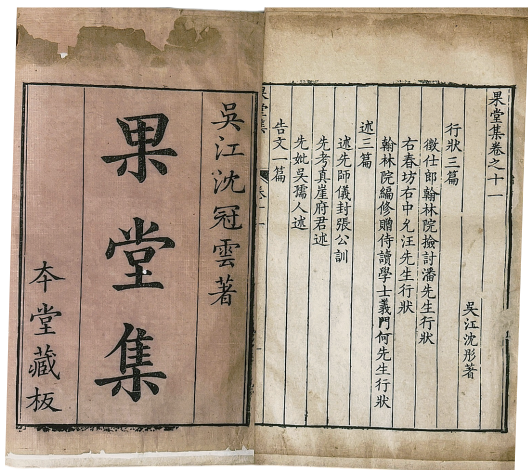 果堂集卷之十一
吳江沈彤著
行狀三篇
徵仕郎翰林院檢討潘先生行狀
右春坊右中允汪先生行狀
翰林院編修贈侍讀學士義門何先生行狀
述三篇
述先師儀封張公訓
先考真崖府君述
先妣吳孺人述
告文一篇
果堂集
吳江沈冠雲著
果堂集
本堂藏板